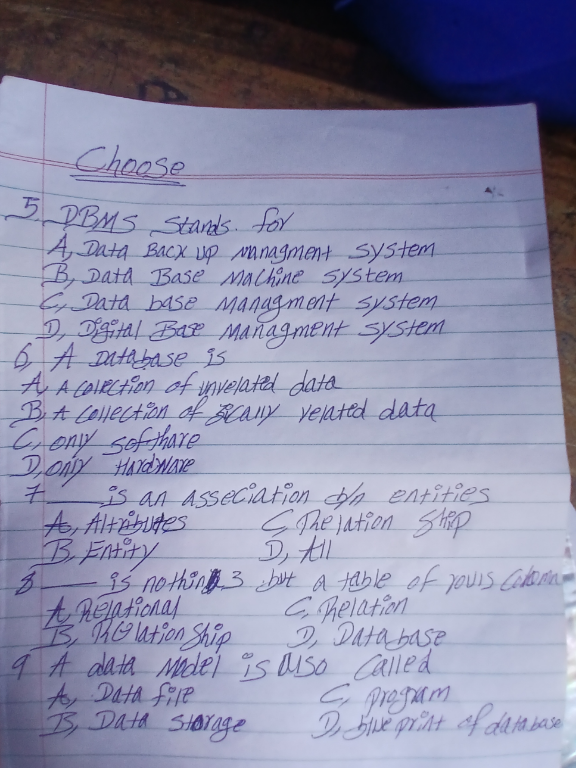 Choose
5 DBMS stands for
A, Data Back up managment system
B, Data Base Machine system
C, Data base managment system
D, Digital Base managment system
6, A Database is
A, A collection of unrelated data
B, A collection of related data
C, only software
D, only Hardware
7 ____ is an asseciation b/n entities
A, Altributes C, Relation Ship
B, Entity D, All
8 ____ is nothing but a table of rows Column
A, Relational C, Relation
B, Relation Ship D, Database
9 A data Model is also Called
A, Data file C, program
B, Data storage D, blue print of database